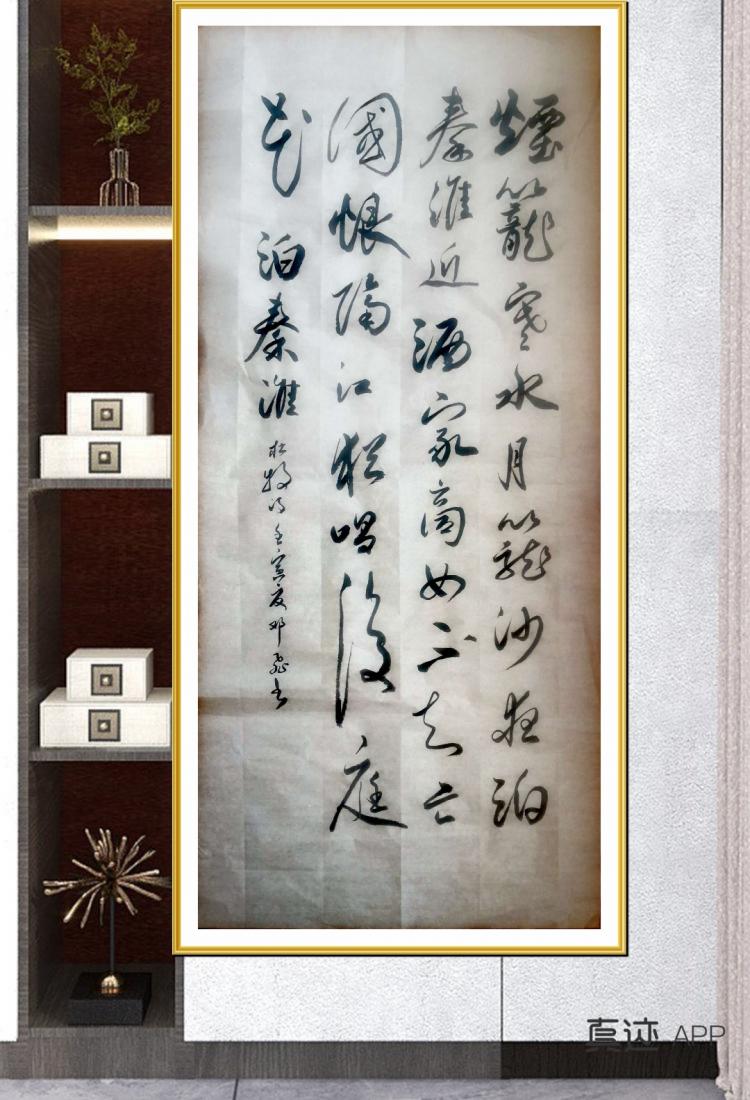 煙籠寒水月籠沙夜泊
秦淮近酒家商女不知亡
國恨隔江猶唱後庭
花 泊秦淮 杜牧诗 壬寅夏 邓 书
真迹 APP